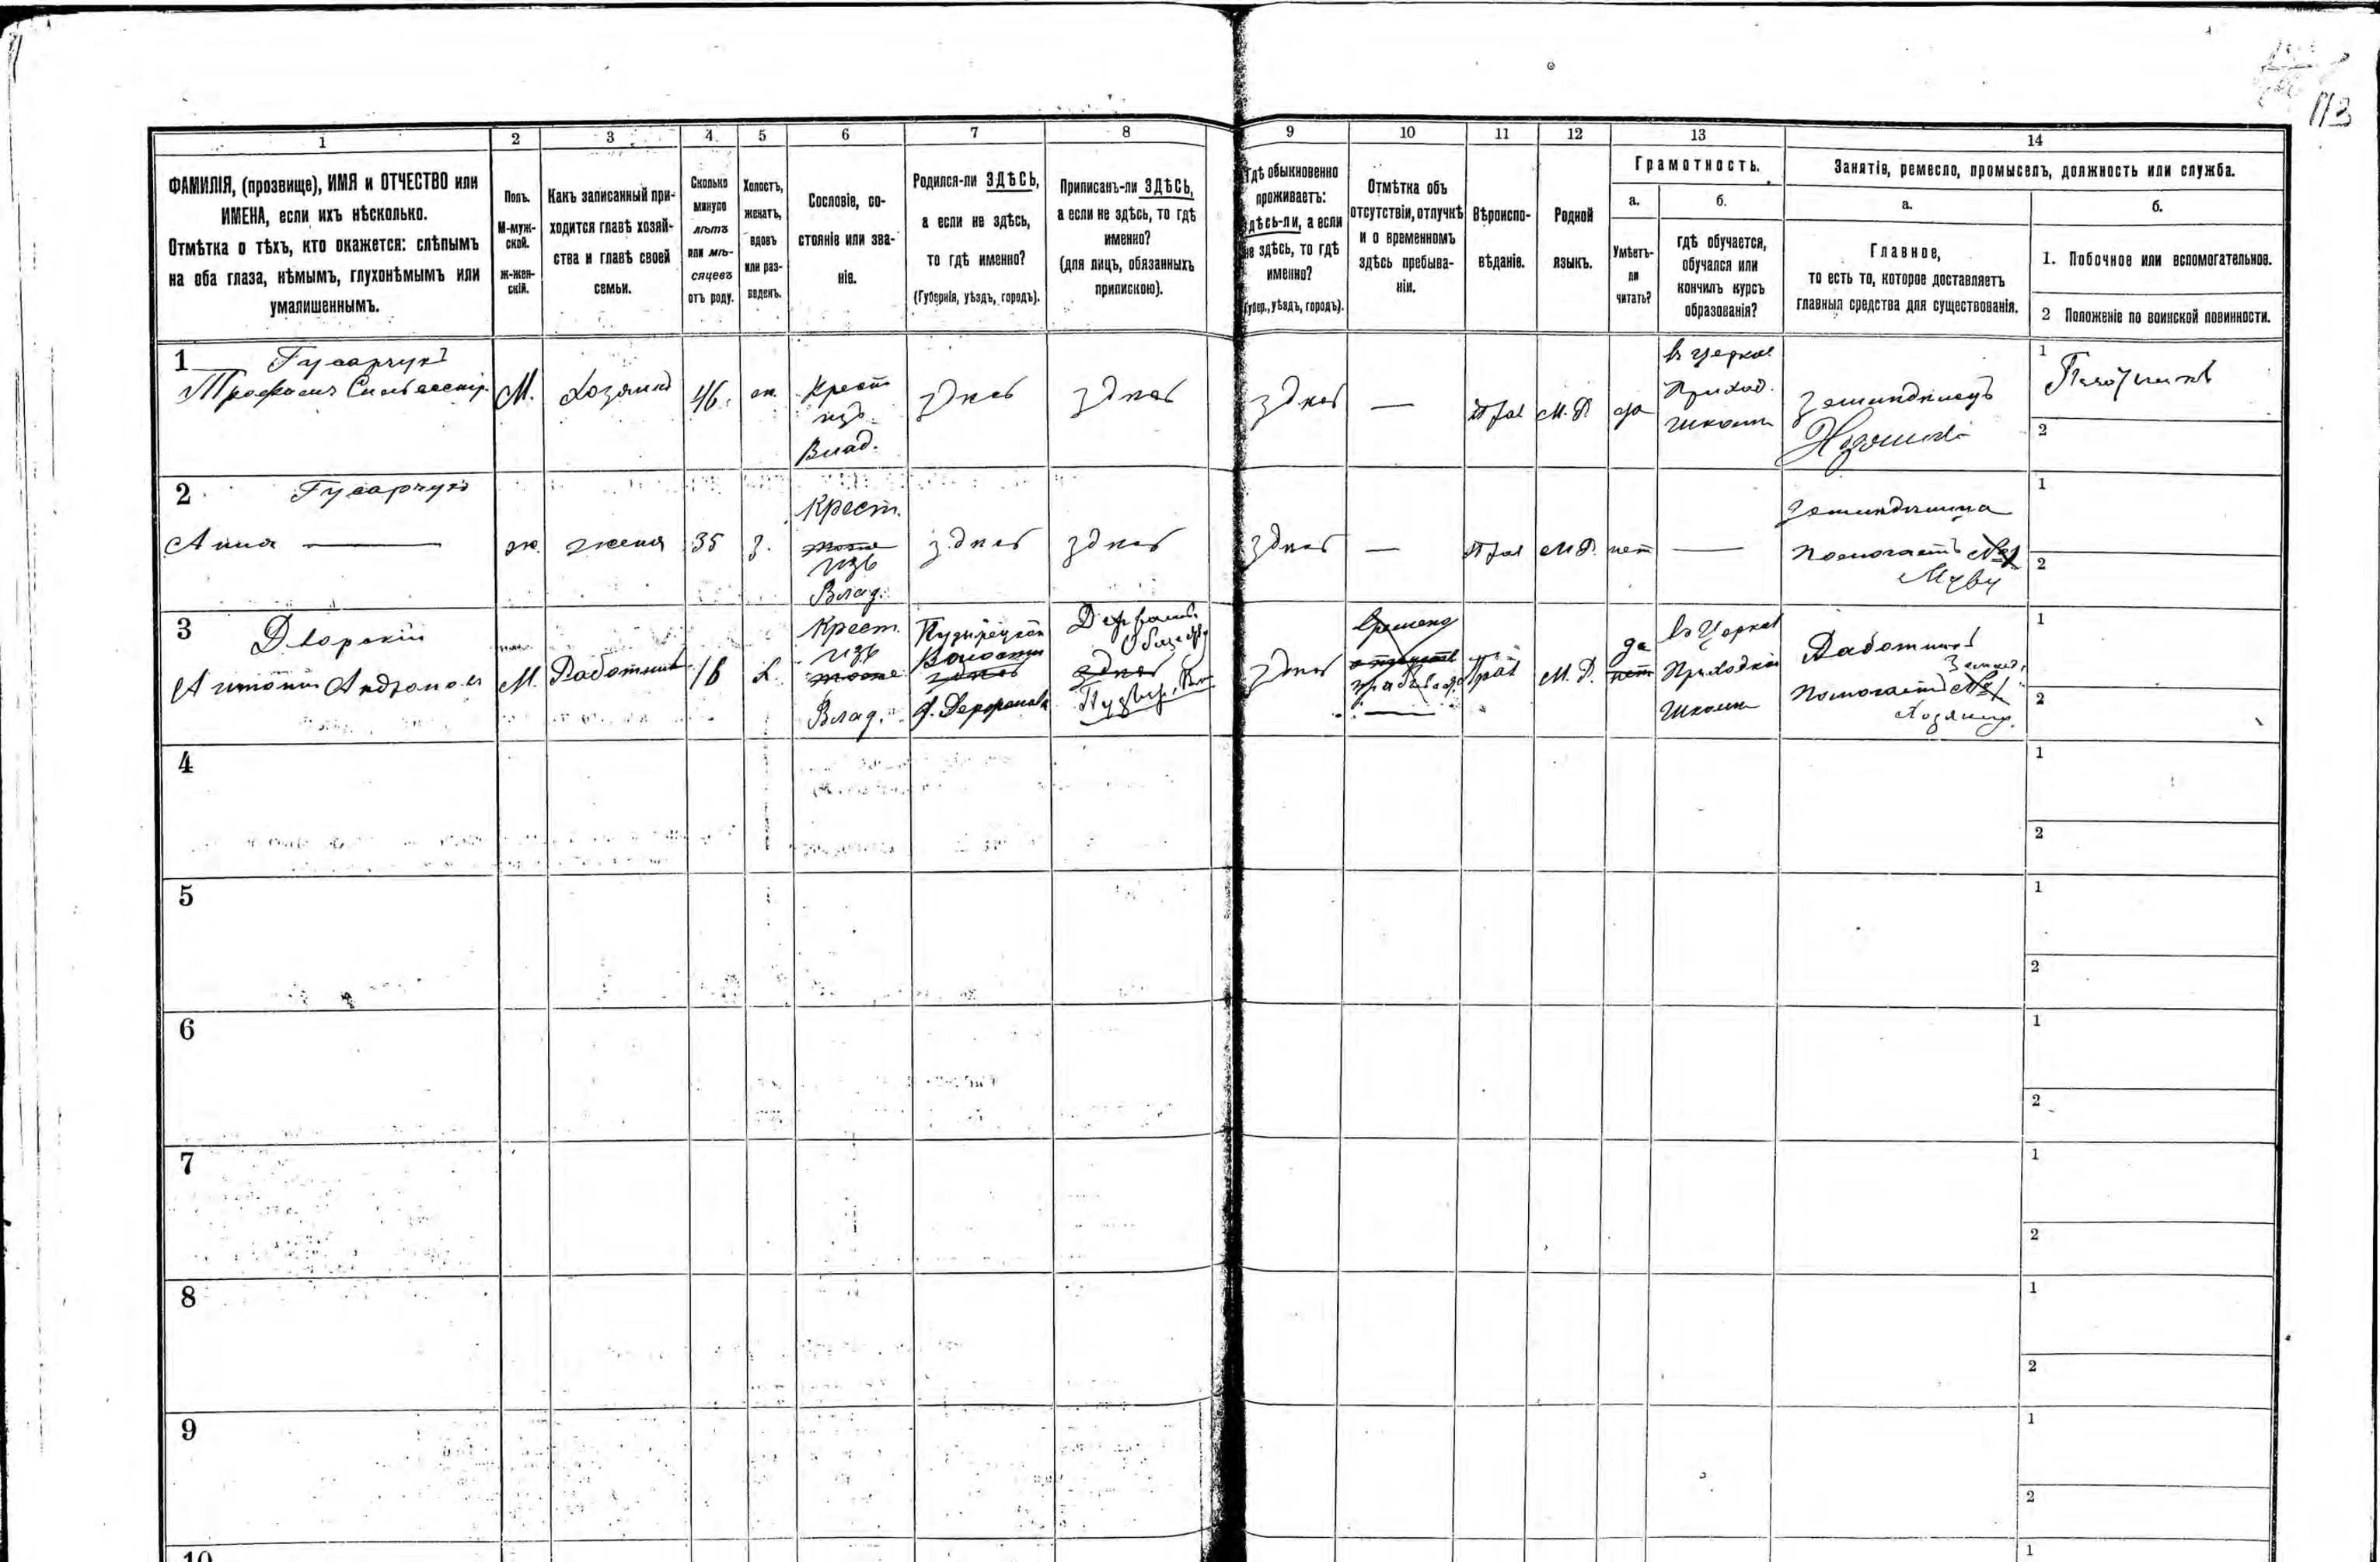 113
1 2 3 4 5 6 7 8 9 10 11 12 13 14
ФАМИЛІЯ, (прозвище), ИМЯ и ОТЧЕСТВО или
ИМЕНА, если ихъ нѣсколько.
Отмѣтка о тѣхъ, кто окажется: слѣпымъ
на оба глаза, нѣмымъ, глухонѣмымъ или
умалишеннымъ.
Полъ.
М-муж-
ской.
ж-жен-
скій.
Какъ записанный при-
ходится главѣ хозяй-
ства и главѣ своей
семьи.
Сколько
минуло
лѣтъ
или мѣ-
сяцевъ
отъ роду.
Холостъ,
женатъ,
вдовъ
или раз-
веденъ.
Сословіе, со-
стояніе или зва-
ніе.
Родился-ли ЗДѢСЬ,
а если не здѣсь,
то гдѣ именно?
(Губернія, уѣздъ, городъ).
Приписанъ-ли ЗДѢСЬ,
а если не здѣсь, то гдѣ
именно?
(для лицъ, обязанныхъ
припискою).
Гдѣ обыкновенно
проживаетъ:
здѣсь-ли, а если
не здѣсь, то гдѣ
именно?
(Губер., уѣздъ, городъ).
Отмѣтка объ
отсутствіи, отлучкѣ
и о временномъ
здѣсь пребыва-
ніи.
Вѣроиспо-
вѣданіе.
Родной
языкъ.
Грамотность.
а.
Умѣетъ-
ли
читать?
б.
гдѣ обучается,
обучался или
кончилъ курсъ
образованія?
Занятія, ремесло, промыселъ, должность или служба.
а.
Главное,
то есть то, которое доставляетъ
главныя средства для существованія.
б.
1. Побочное или вспомогательное.
2 Положеніе по воинской повинности.
1 Гусарчукъ
Трофимъ Сильвестр.
М.
Хозяинъ
46.
ж.
Крест
изъ
Влад.
здѣсь
здѣсь
здѣсь
—
Прав
М. Р.
да
въ Церков
Приход.
школѣ
земледѣлецъ
Хозяинъ
1
2
2 Гусарчукъ
Анна —
ж.
жена
35
з.
Крест.
тоже
изъ
Влад.
здѣсь
здѣсь
здѣсь
—
Прав
М Р.
нет
—
Помогаетъ №1
Мужу
1
2
3 Дворскій
Антонъ
М.
Работникъ
Х.
Крест.
изъ
тоже
Влад.
Волости
здѣсь
здѣсь
здѣсь
Прав
М. Р.
да
нет
въ Церков
Приходской
школѣ
Работникъ
Помогаетъ №1
Хозяину.
1
2
4
1
2
5
1
2
6
1
2
7
1
2
8
1
2
9
1
2
10
1